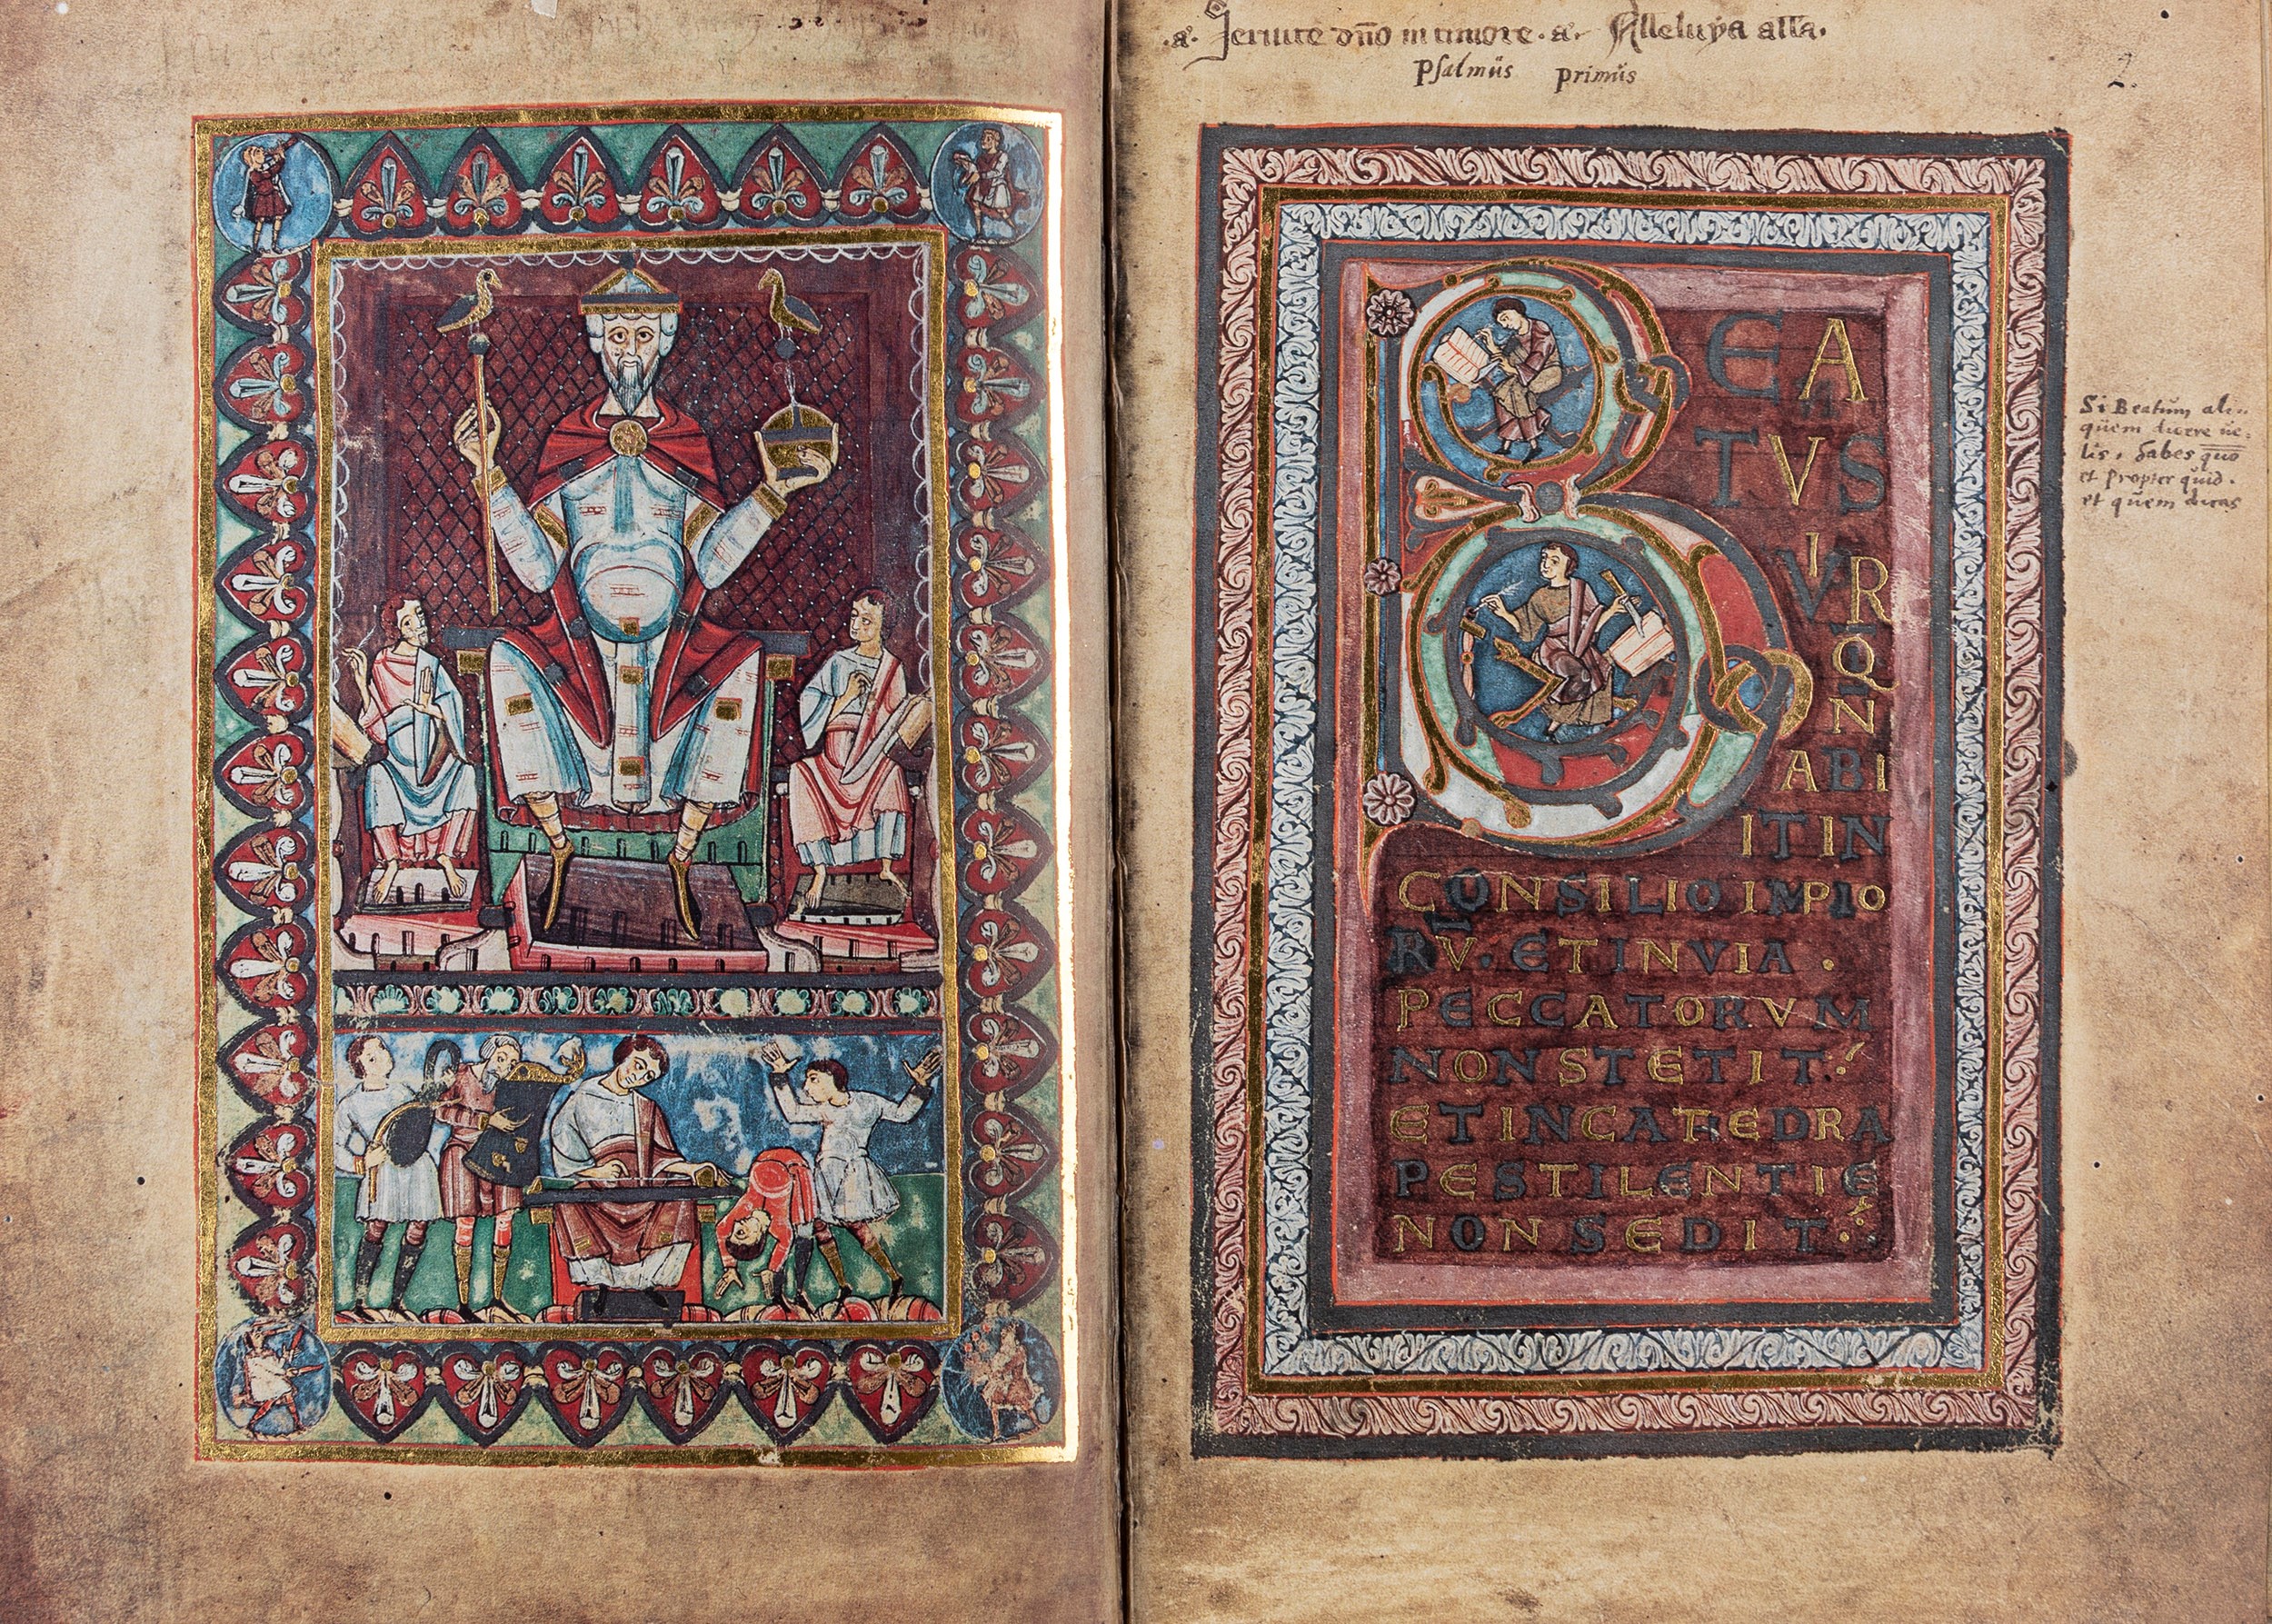 .a. Seruite dño in timore. a. Alleluya alla.
Psalmus primus
2.
B EA
TVS
VIR
Q
N
ABI
IT IN
CONSILIO IMPIO
RV. ET IN VIA .
PECCATORVM
NON STETIT:
ET IN CATEDRA
PESTILENTIE
NON SEDIT:
Si Beatum ali-
quem dicere ue-
lis,
et propter quid.
et quem dicas